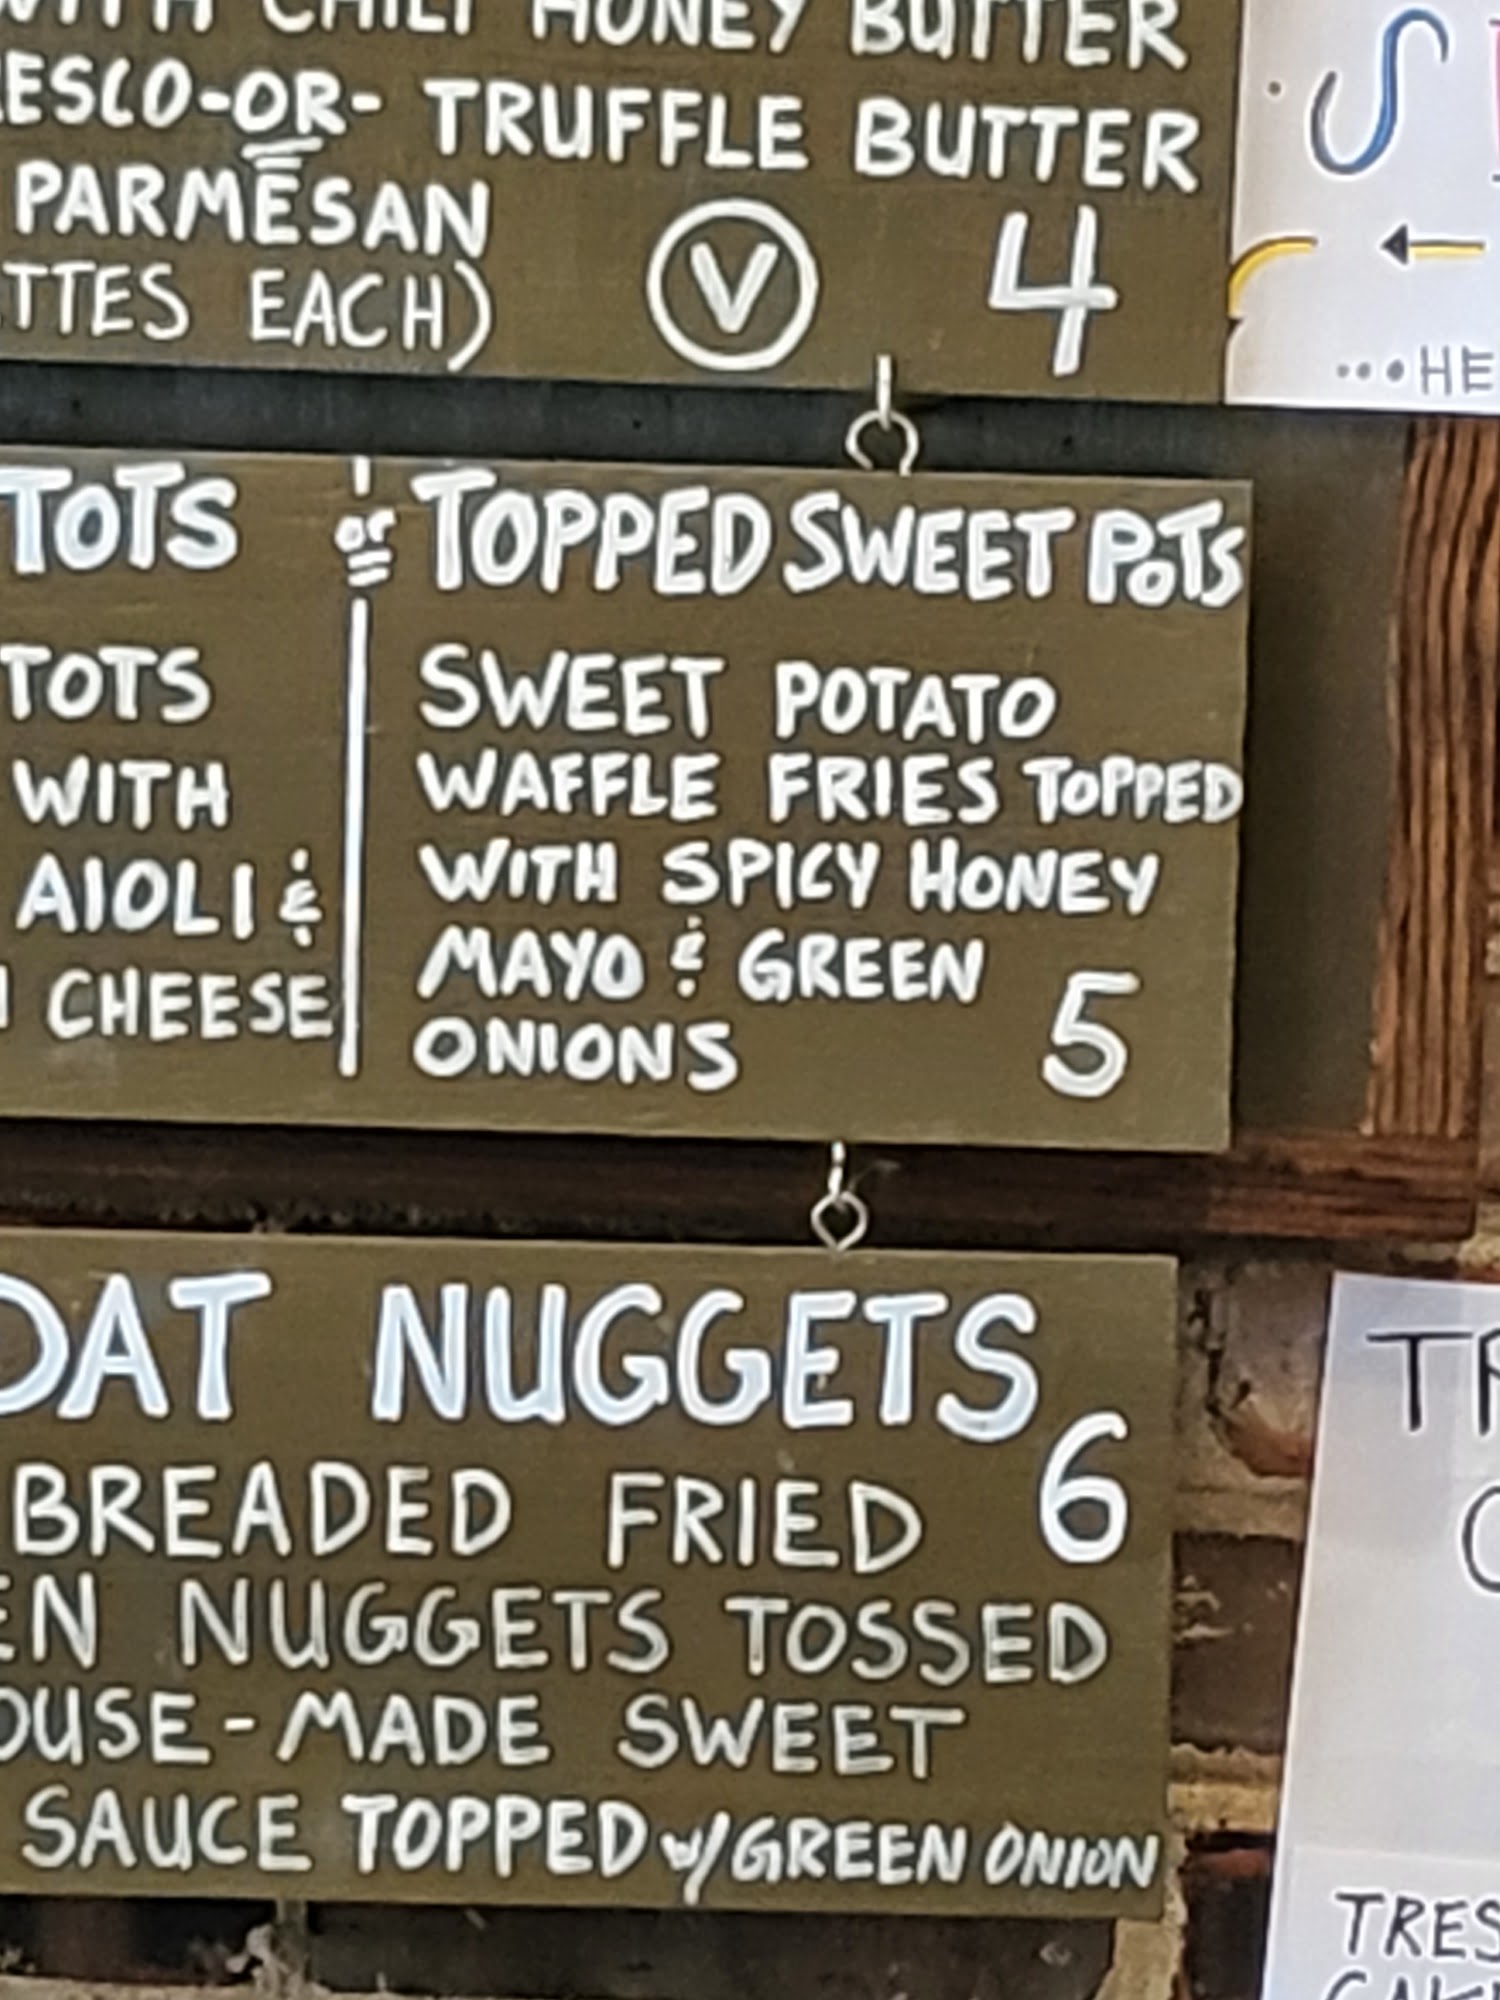 WITH CHILI HONEY BUTTER
ESCO -OR- TRUFFLE BUTTER
PARMESAN
TTES EACH) V 4
TOTS
TOTS
WITH
AIOLI &
CHEESE
or
TOPPED SWEET POTS
SWEET POTATO
WAFFLE FRIES TOPPED
WITH SPICY HONEY
MAYO & GREEN
ONIONS 5
OAT NUGGETS
6
BREADED FRIED
EN NUGGETS TOSSED
OUSE-MADE SWEET
SAUCE TOPPED w/ GREEN ONION
S
...HE
TR
TRES